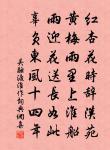 红杏花时辞汉苑
黄梅雨里上淮船
雨迎花送长如此
辜负东风十四年
吴融渡淮作诗词典网集